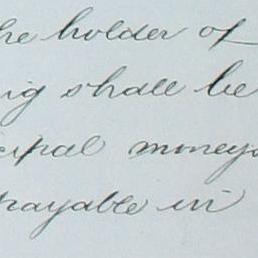 he holder of
ig shall be
cipal moneys
payable in